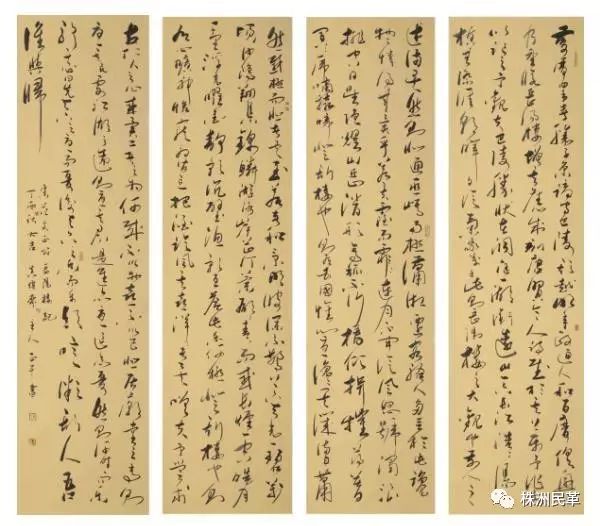 慶曆四年春滕子京謫守巴陵郡越明年政通人和百廢俱興
乃重修岳陽樓增其舊制刻唐賢今人詩賦於其上屬予作文
以記之予觀夫巴陵勝狀在洞庭一湖銜遠山吞長江浩浩湯湯
橫無際涯朝暉夕陰氣象萬千此則岳陽樓之大觀也前人之
述備矣然則北通巫峽南極瀟湘遷客騷人多會於此覽
物之情得無異乎若夫霪雨霏霏連月不開陰風怒號濁浪
排空日星隱耀山岳潛形商旅不行檣傾楫摧薄暮
冥冥虎嘯猿啼登斯樓也則有去國懷鄉憂讒畏譏滿目蕭
然感極而悲者矣至若春和景明波瀾不驚上下天光一碧萬
頃沙鷗翔集錦鱗游泳岸芷汀蘭郁郁青青而或長煙一空皓月
千里浮光躍金靜影沉璧漁歌互答此樂何極登斯樓也則有
心曠神怡寵辱偕忘把酒臨風其喜洋洋者矣嗟夫予嘗求
古仁人之心或異二者之為何哉不以物喜不以己悲居廟堂之高則
憂其民處江湖之遠則憂其君是進亦憂退亦憂然則何時而樂
耶其必曰先天下之憂而憂後天下之樂而樂乎噫微斯人吾
誰與歸
岳陽樓記
丁酉秋
株洲民革